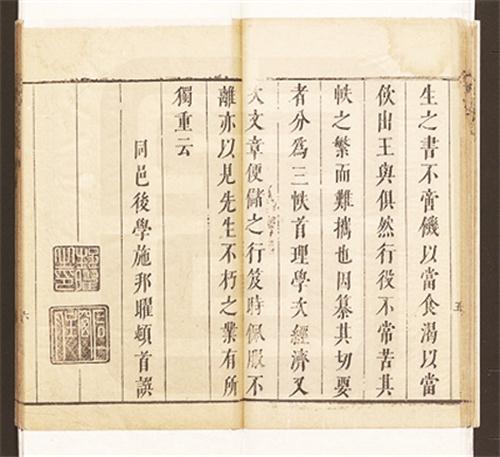 生之書不啻饑以當食渴以當
飲出王與俱然行役不常苦其
帙之繁而難攜也因纂其切要
者分為三帙首理學次經濟又
次文章便儲之行笈時佩服不
離亦以見先生不朽之業有所
獨重云
同邑後學施邦曜頓首譔
五
六